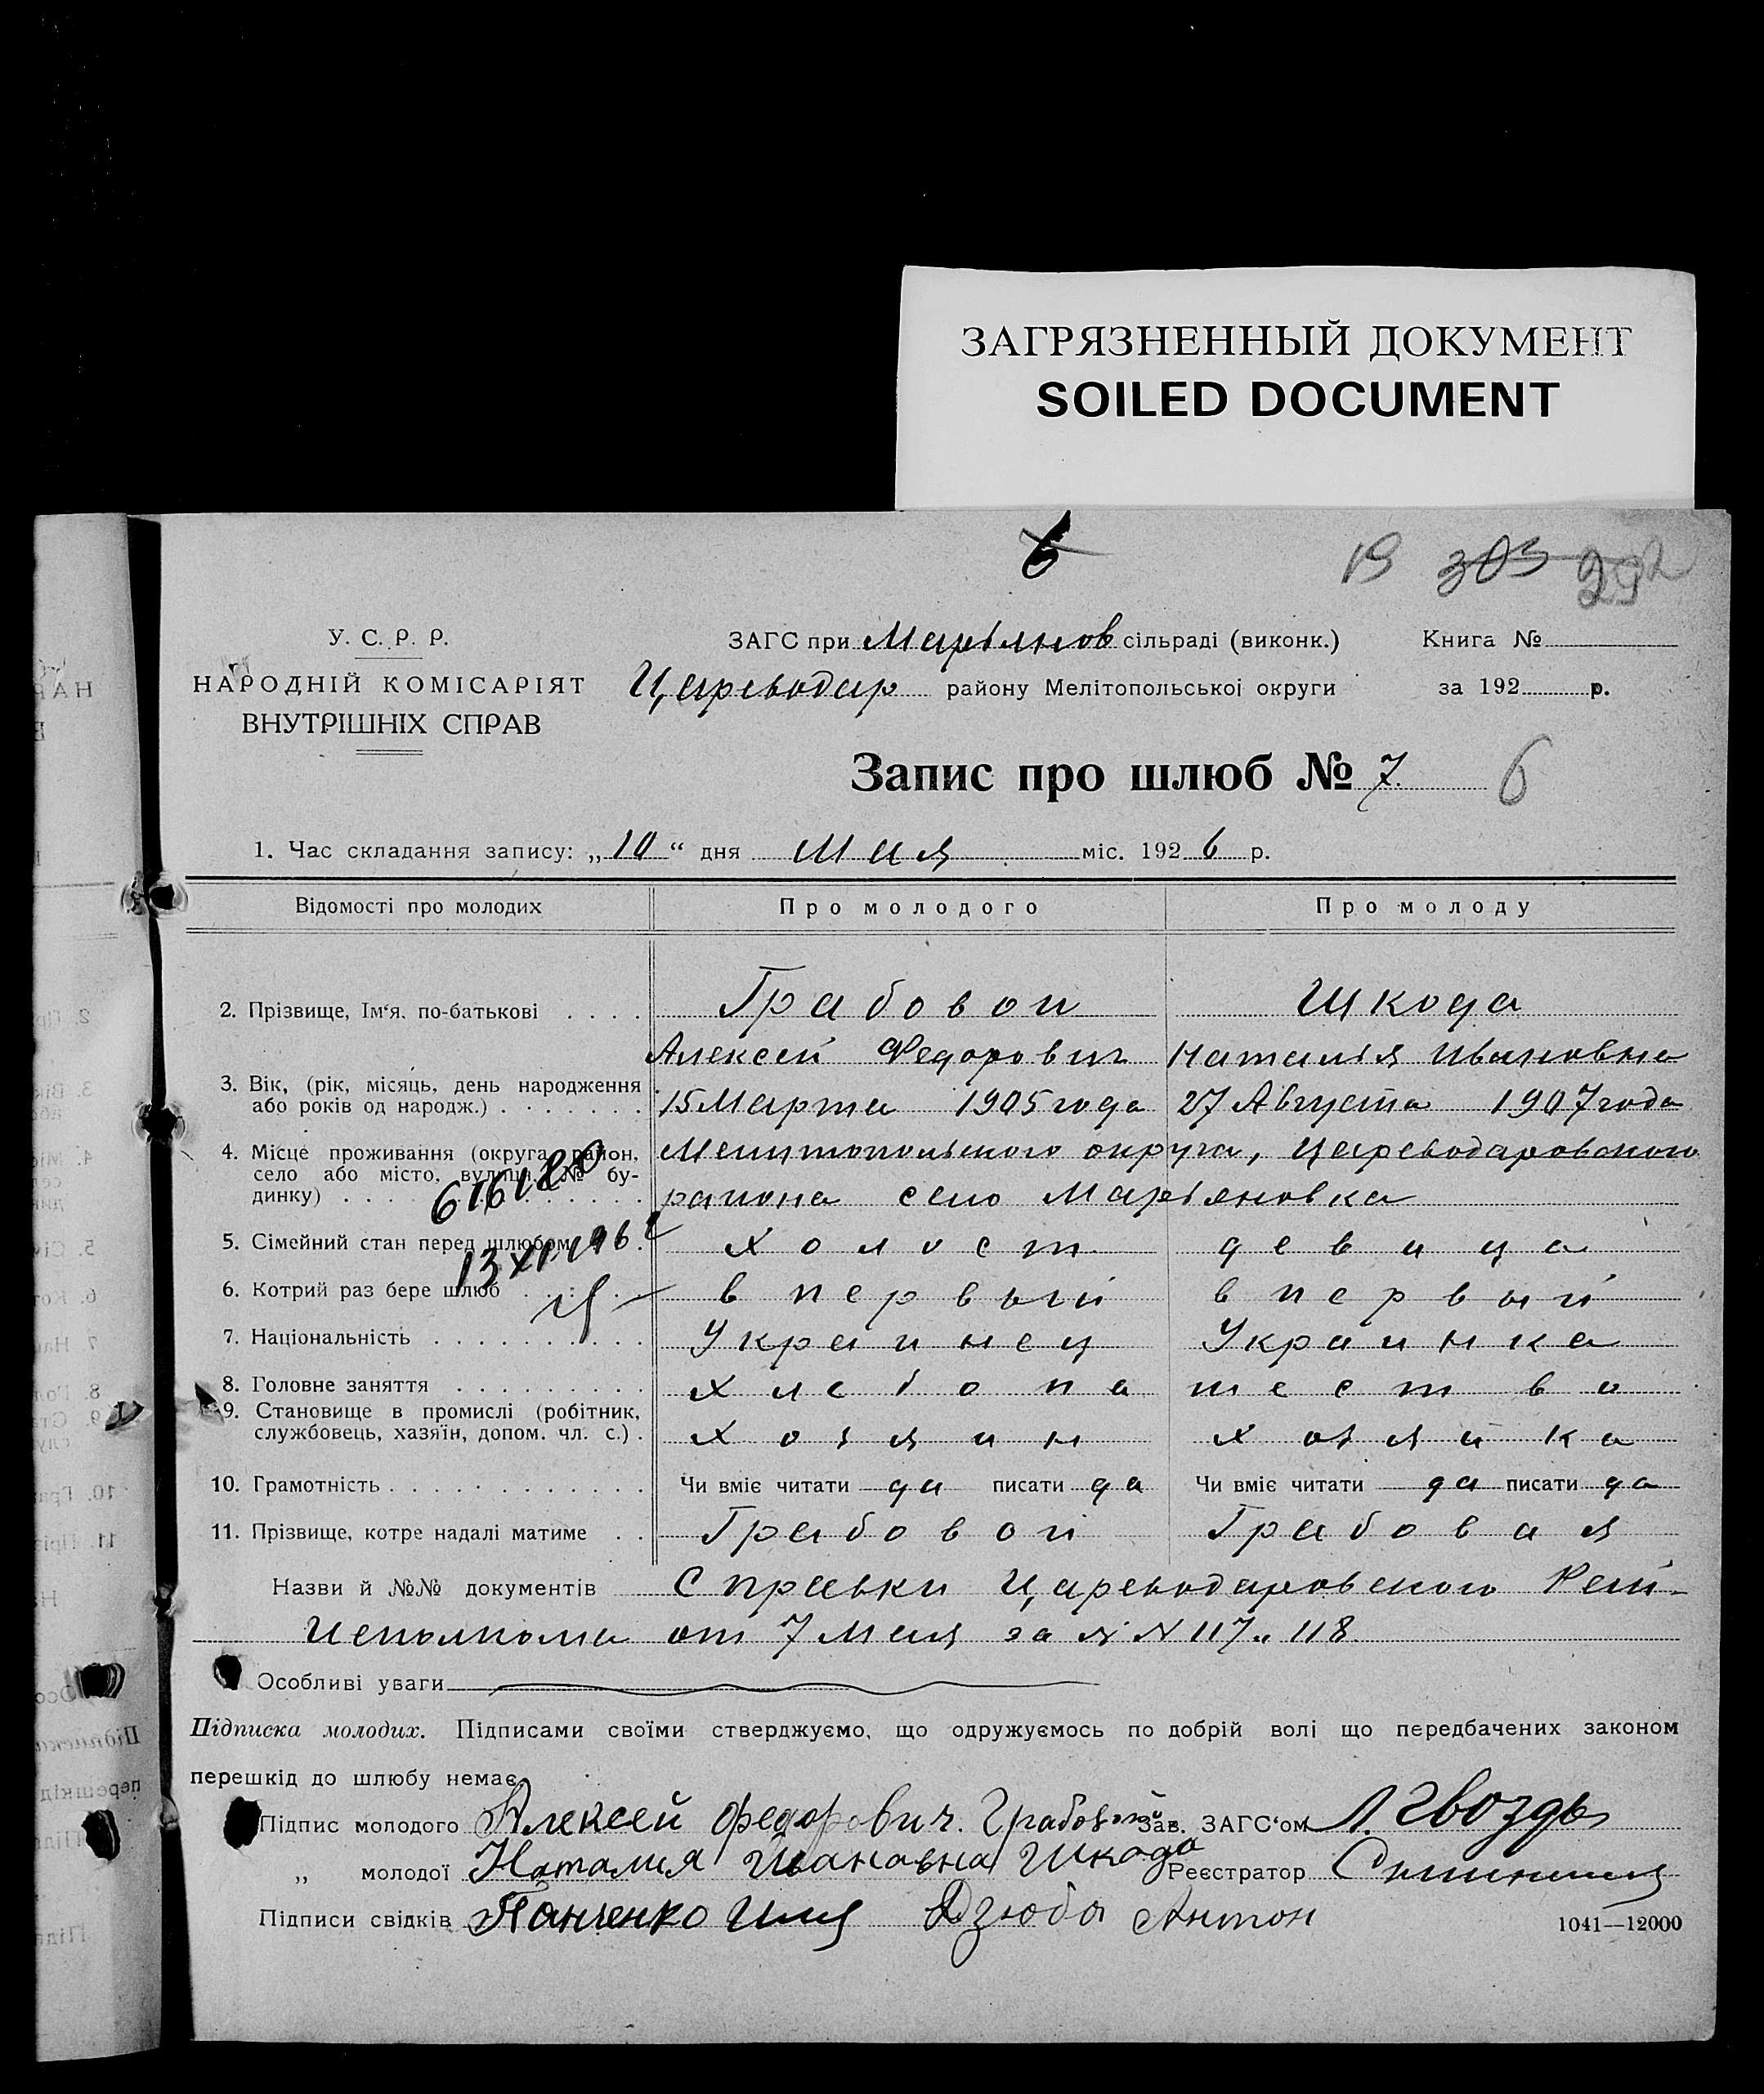 ЗАГРЯЗНЕННЫЙ ДОКУМЕНТ
SOILED DOCUMENT
6
19 303
У. С. Р. Р.
НАРОДНІЙ КОМІСАРІЯТ
ВНУТРІШНІХ СПРАВ
ЗАГС при Марьянов сільраді (виконк.)
Цареводар району Мелітопольської округи
Книга №
за 192 р.
Запис про шлюб № 7. 6
1. Час складання запису: „10“ дня мая міс. 1926 р.
Відомості про молодих Про молодого Про молоду
2. Прізвище, Ім'я, по-батькові Грабовой Шкода
Алексей Федорович Наталья Ивановна
3. Вік, (рік, місяць, день народження або років од народж.) 15 Марта 1905 года 27 Августа 1907 года
4. Місце проживання (округа, район, Мелитопольского округа, Цареводаровского
село або місто, вулиця, № будинку) района село Марьяновка
616180
5. Сімейний стан перед шлюбом холост девица
13 XI 196
6. Котрий раз бере шлюб в первый в первый
7. Національність Украинец Украинка
8. Головне заняття Хлебопашество
9. Становище в промислі (робітник, службовець, хазяїн, допом. чл. с.) Хозяин Хозяйка
10. Грамотність Чи вміє читати да писати да Чи вміє читати да писати да
11. Прізвище, котре надалі матиме Грабовой Грабовая
Назви й №№ документів Справки Цареводаровского Рай-
Исполкома от 7 Мая за №№ 117 и 118
Особливі уваги
Підписка молодих. Підписами своїми стверджуємо, що одружуємось по добрій волі що передбачених законом
перешкід до шлюбу немає.
Підпис молодого Алексей Федорович. Грабовой Зав. ЗАГС'ом Л. Гвоздь
„ молодої Наталия Ивановна Шкода Реєстратор
Підписи свідків Панченко Илья Дзюба Антон
1041—12000